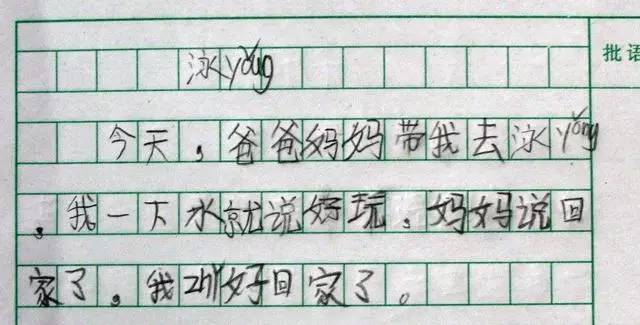 泳yǒng
批语
今天，爸爸妈妈带我去泳yǒng
，我一下水就说好玩，妈妈说回
家了，我zhǐ好回家了。